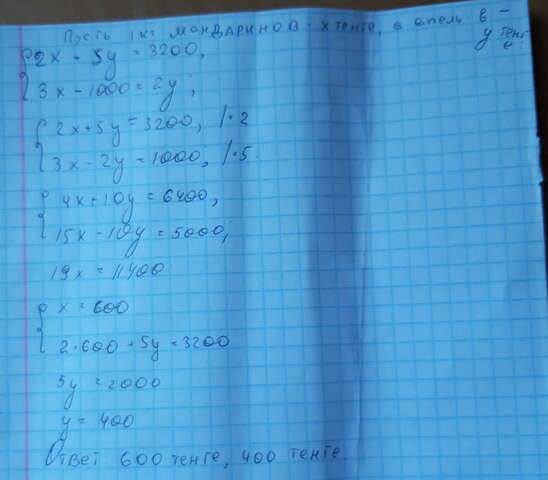 Пусть 1 кг мандаринов - x тенге, а апельсинов -
y тенге.
2x + 5y = 3200,
3x - 1000 = 2y;
2x + 5y = 3200, | · 2
3x - 2y = 1000, | · 5
4x + 10y = 6400,
15x - 10y = 5000;
19x = 11400
x = 600
2 · 600 + 5y = 3200
5y = 2000
y = 400
Ответ 600 тенге, 400 тенге.